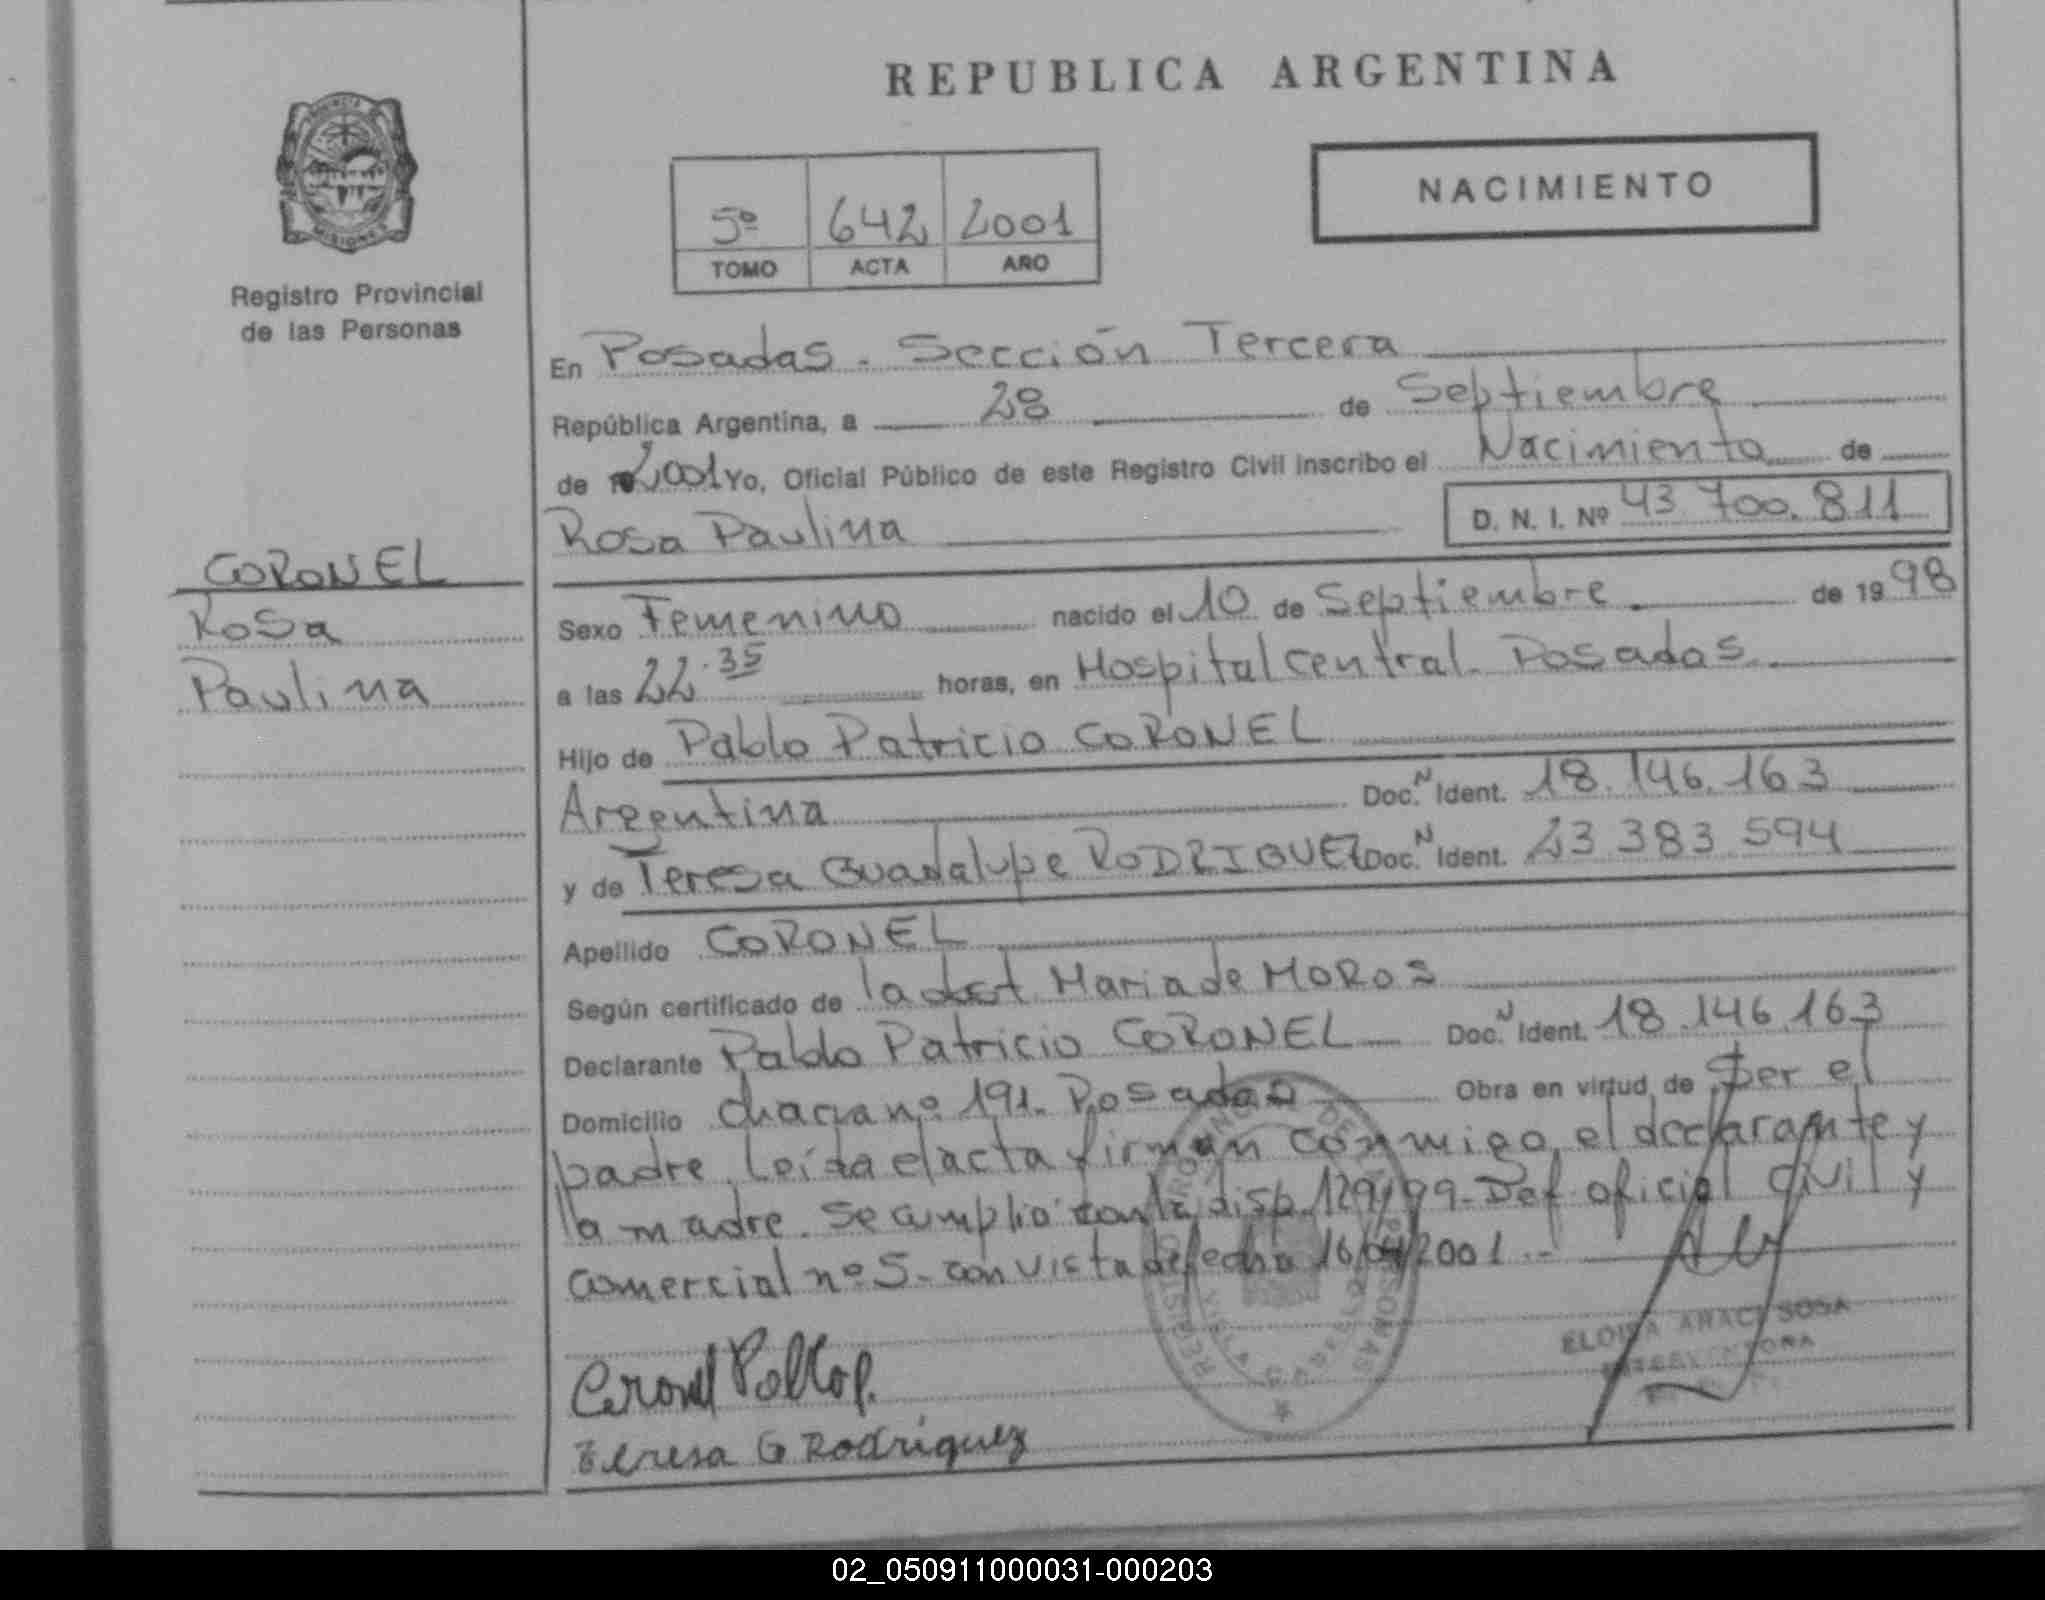 REPUBLICA ARGENTINA
PROVINCIA
MISIONES
Registro Provincial
de las Personas
5º 642 2001
TOMO ACTA AÑO
NACIMIENTO
En Posadas. Sección Tercera
República Argentina, a 28 de Septiembre
de 2001 Yo, Oficial Público de este Registro Civil inscribo el Nacimiento de
Rosa Paulina D. N. I. Nº 43.700.811
CORONEL
Rosa
Paulina
Sexo Femenino nacido el 10 de Septiembre de 1998
a las 22.35 horas, en Hospital central. Posadas
Hijo de Pablo Patricio CORONEL
Argentina Doc.N Ident. 18.146.163
y de Teresa Guadalupe RODRIGUEZ Doc.N Ident. 23 383 594
Apellido CORONEL
Según certificado de la obst Maria de MOROS
Declarante Pablo Patricio CORONEL Doc.N Ident. 18.146.163
Domicilio chacra nº 191. Posadas Obra en virtud de Ser el
padre. Leída el acta firman conmigo el declarante y
la madre. Se cumplio con la disp. 129/99. Def oficial civil y
comercial nº 5. con vista de fecha 16/04/2001.-
Coronel Pablo p.
Teresa G Rodriguez
ELOISA ARACI SOSA
INTERVENTORA
02_050911000031-000203